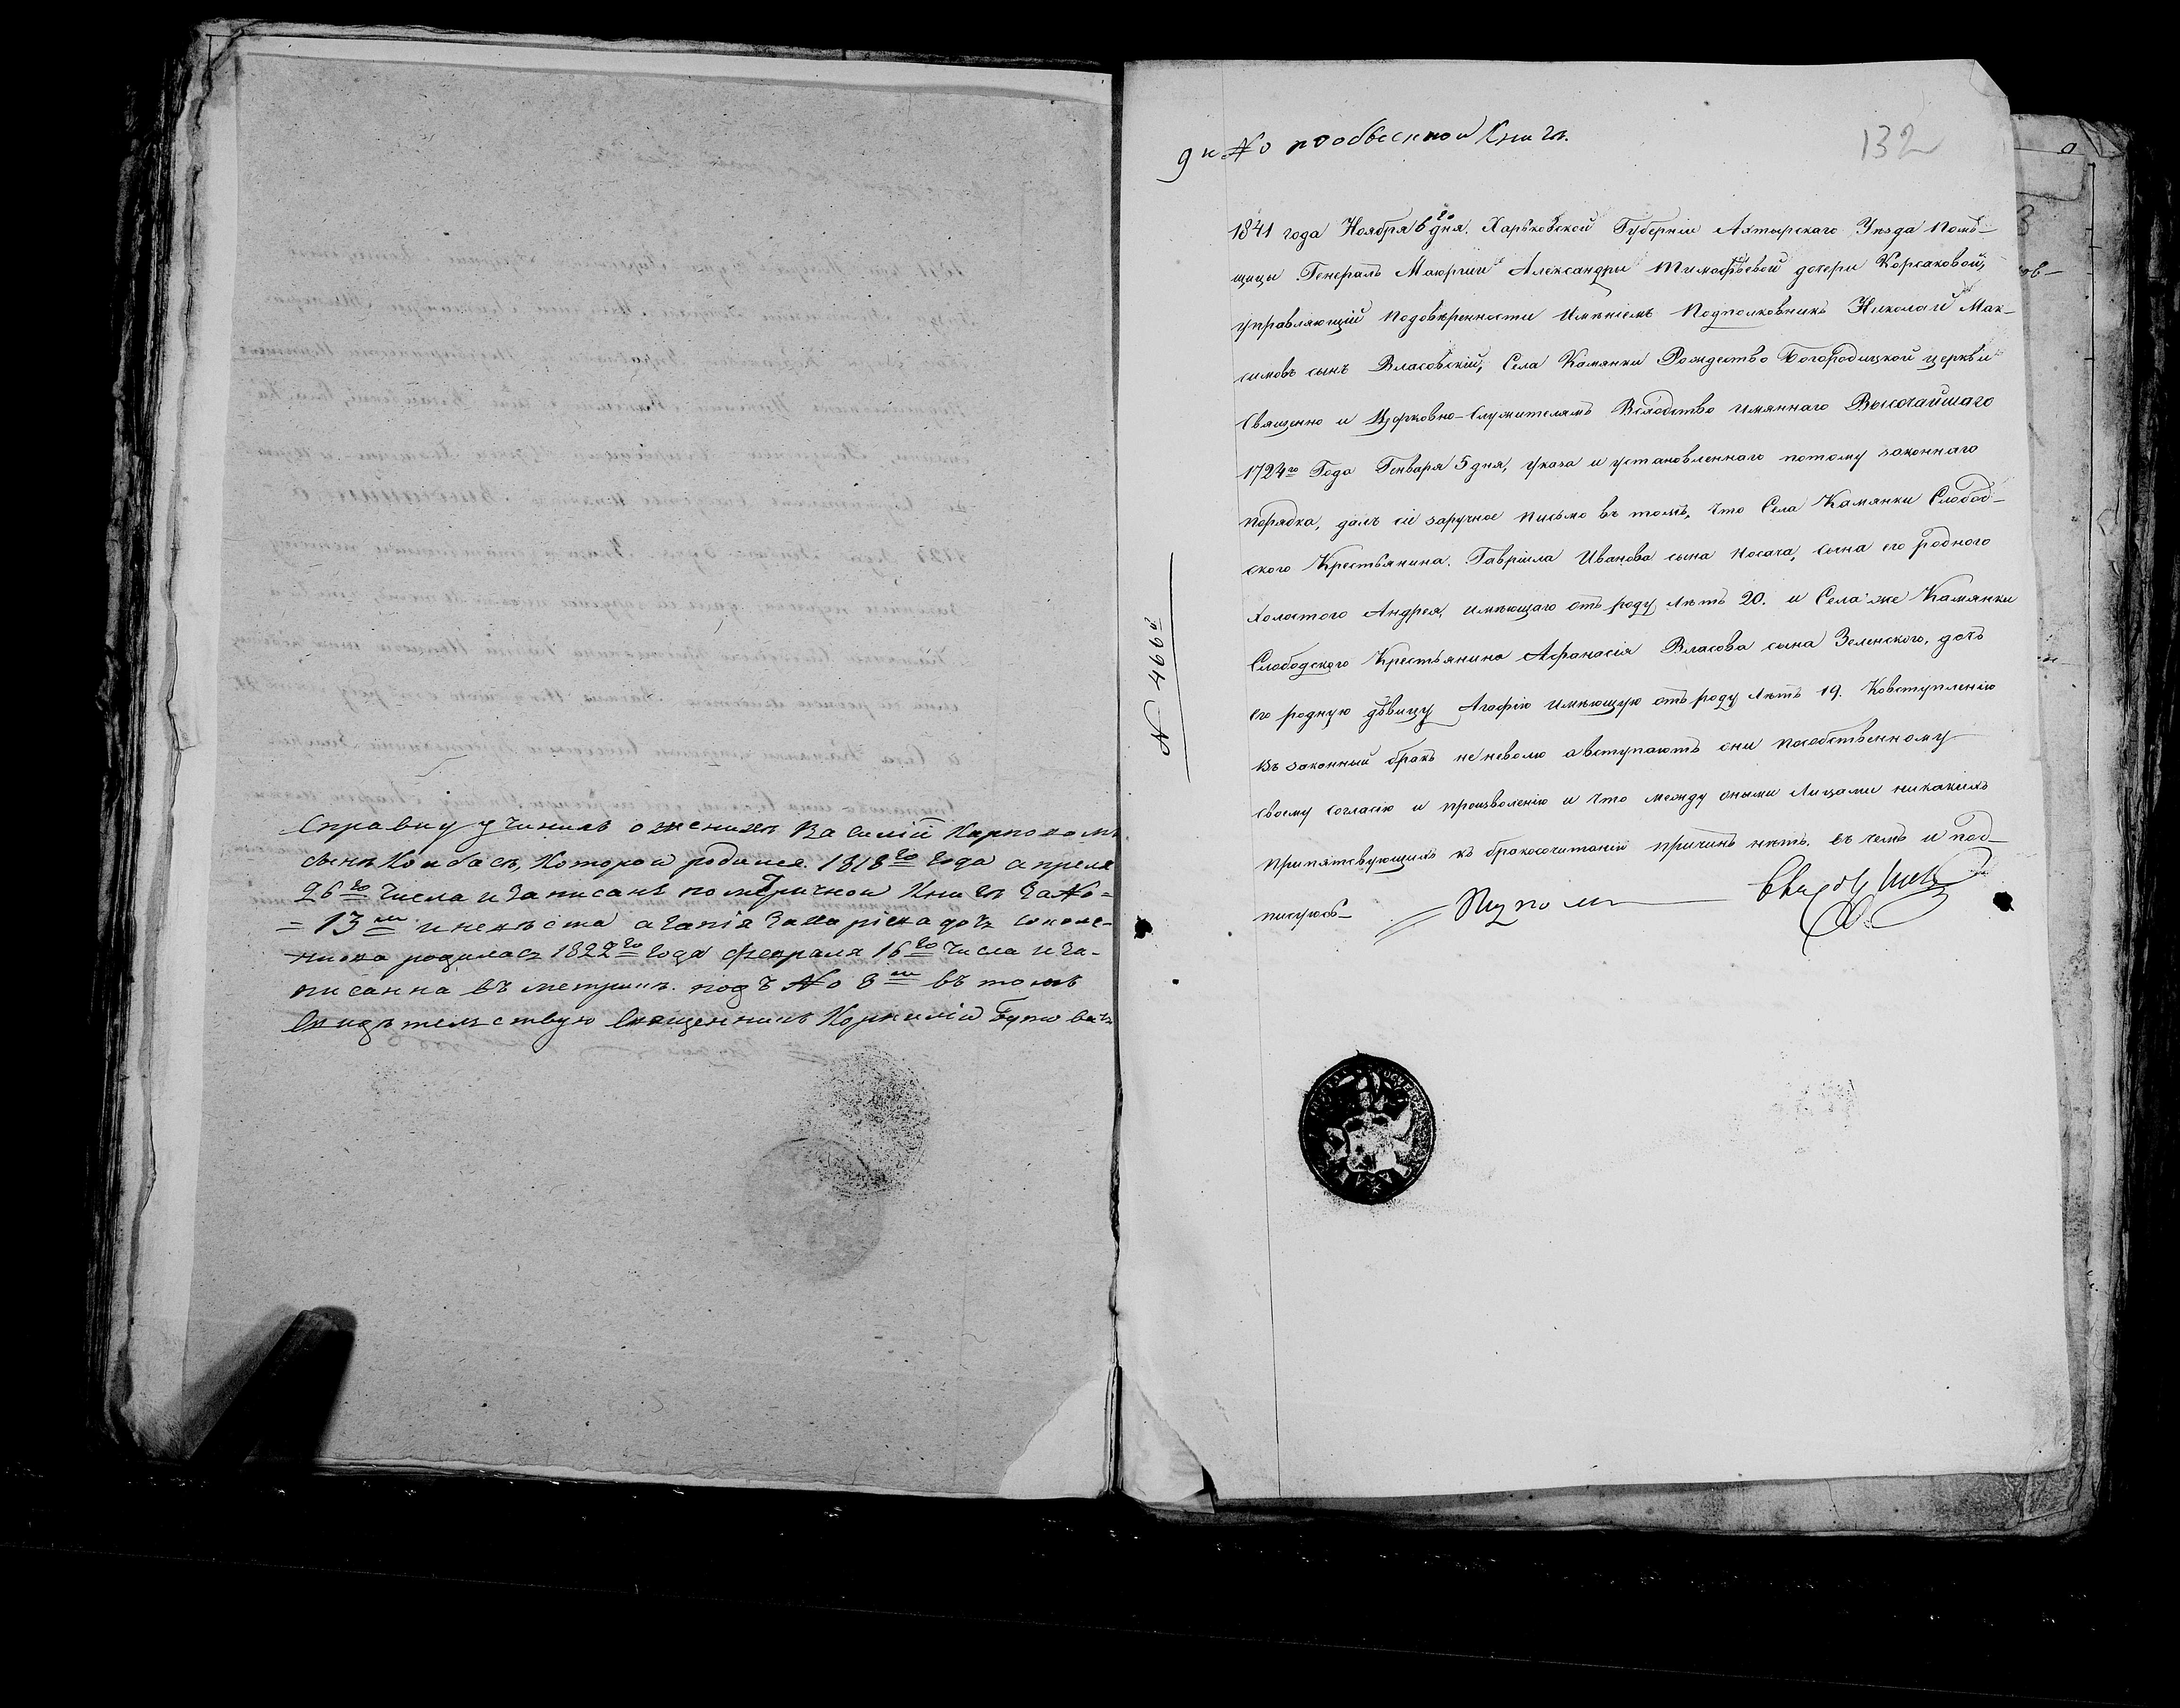 Справку учинилъ о женихѣ Василій Карповомъ
сынѣ Колбасѣ, которой родился 1818го года апреля
26го числа и записанъ по метричной книгѣ за No=
=13м и невѣста агапія Захаріева дочь
родилась 1822го года февраля 16го числа и за-
писанна въ метрикѣ подъ No 8м въ томъ
Свидѣтельствую Священникъ Корнилій
9й No по обыскной Книгѣ.
132
1841 года Ноября 6го дня. Харьковской Губерніи Ахтырскаго Уѣзда Помѣ-
щицы Генералъ Маіоршии Александры Тимофѣевой дочери Корсаковой,
управляющій подовѣренности Имѣніемъ Подполковникъ Николай Мак-
симовъ сынъ Власовскій, Села Камянки Рождество Богородицкой церкви
Священно и Церковно-Служителямъ Вслѣдство имяннаго Высочайшаго
1724го Года Генваря 5 дня, указа и установленнаго потому законнаго
порядка, далъ сіе заручное письмо въ томъ, что Села Камянки Слобод-
ского Крестьянина. Гавріила Иванова сына Носача, сына его родного
холостого Андрея, имѣющаго отъ роду лѣтъ 20. и Села же Камянки
Слободского Крестьянина Афанасія Власова сына Зеленского, дочь
его родную дѣвицу Агафію имѣющую отъ роду лѣтъ 19. Ковступленію
въ законный бракъ неневолю авступаютъ они пособственному
своему согласію и произволенію и что между оными лицами никакихъ
припятсвующихъ къ бракосочитанію причинъ нѣтъ. въ чемъ и под-
писуюсь-
N 466й